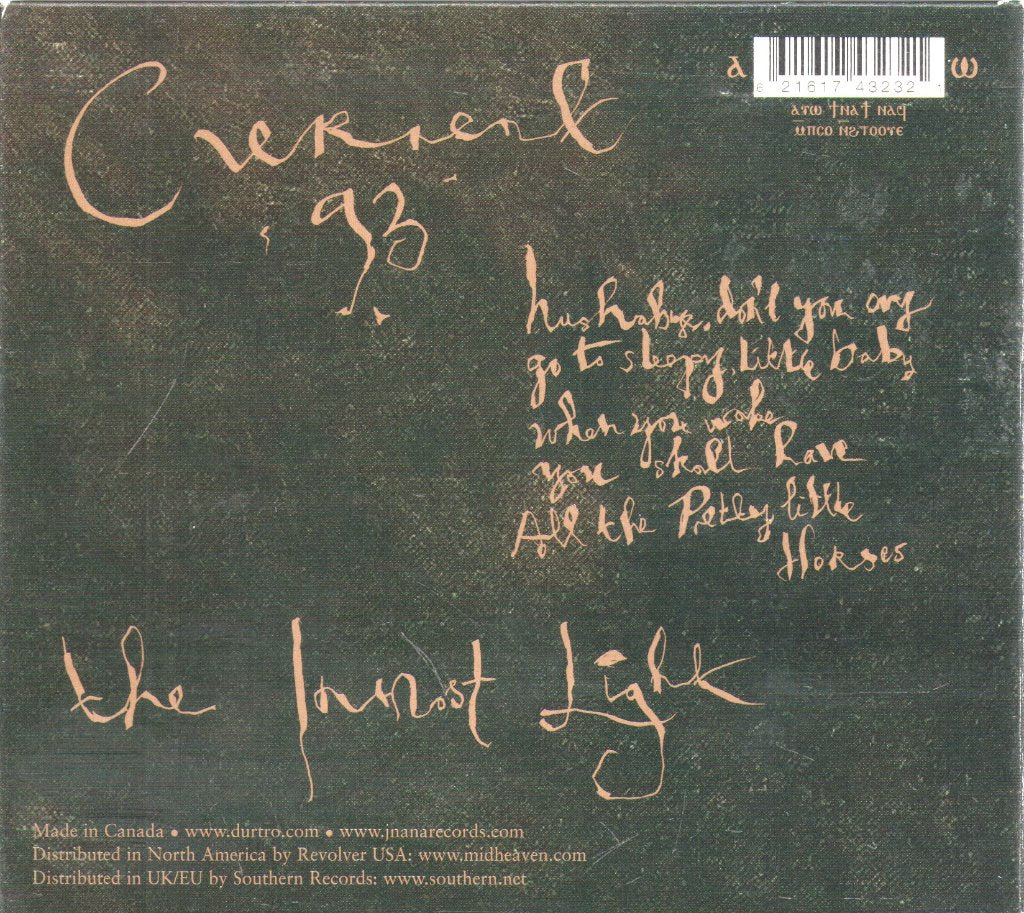 ⲁ ⲱ
6 21617 43232 1
ⲁⲩⲱ ϯⲛⲁϯ ⲛⲁϥ
ⲛϩⲧⲟⲟⲩⲉ
Current
93
hushabye, don't you cry
go to sleepy, little baby
when you wake
you shall have
All the Pretty little
Horses
the Inmost Light
Made in Canada • www.durtro.com • www.jnanarecords.com
Distributed in North America by Revolver USA: www.midheaven.com
Distributed in UK/EU by Southern Records: www.southern.net